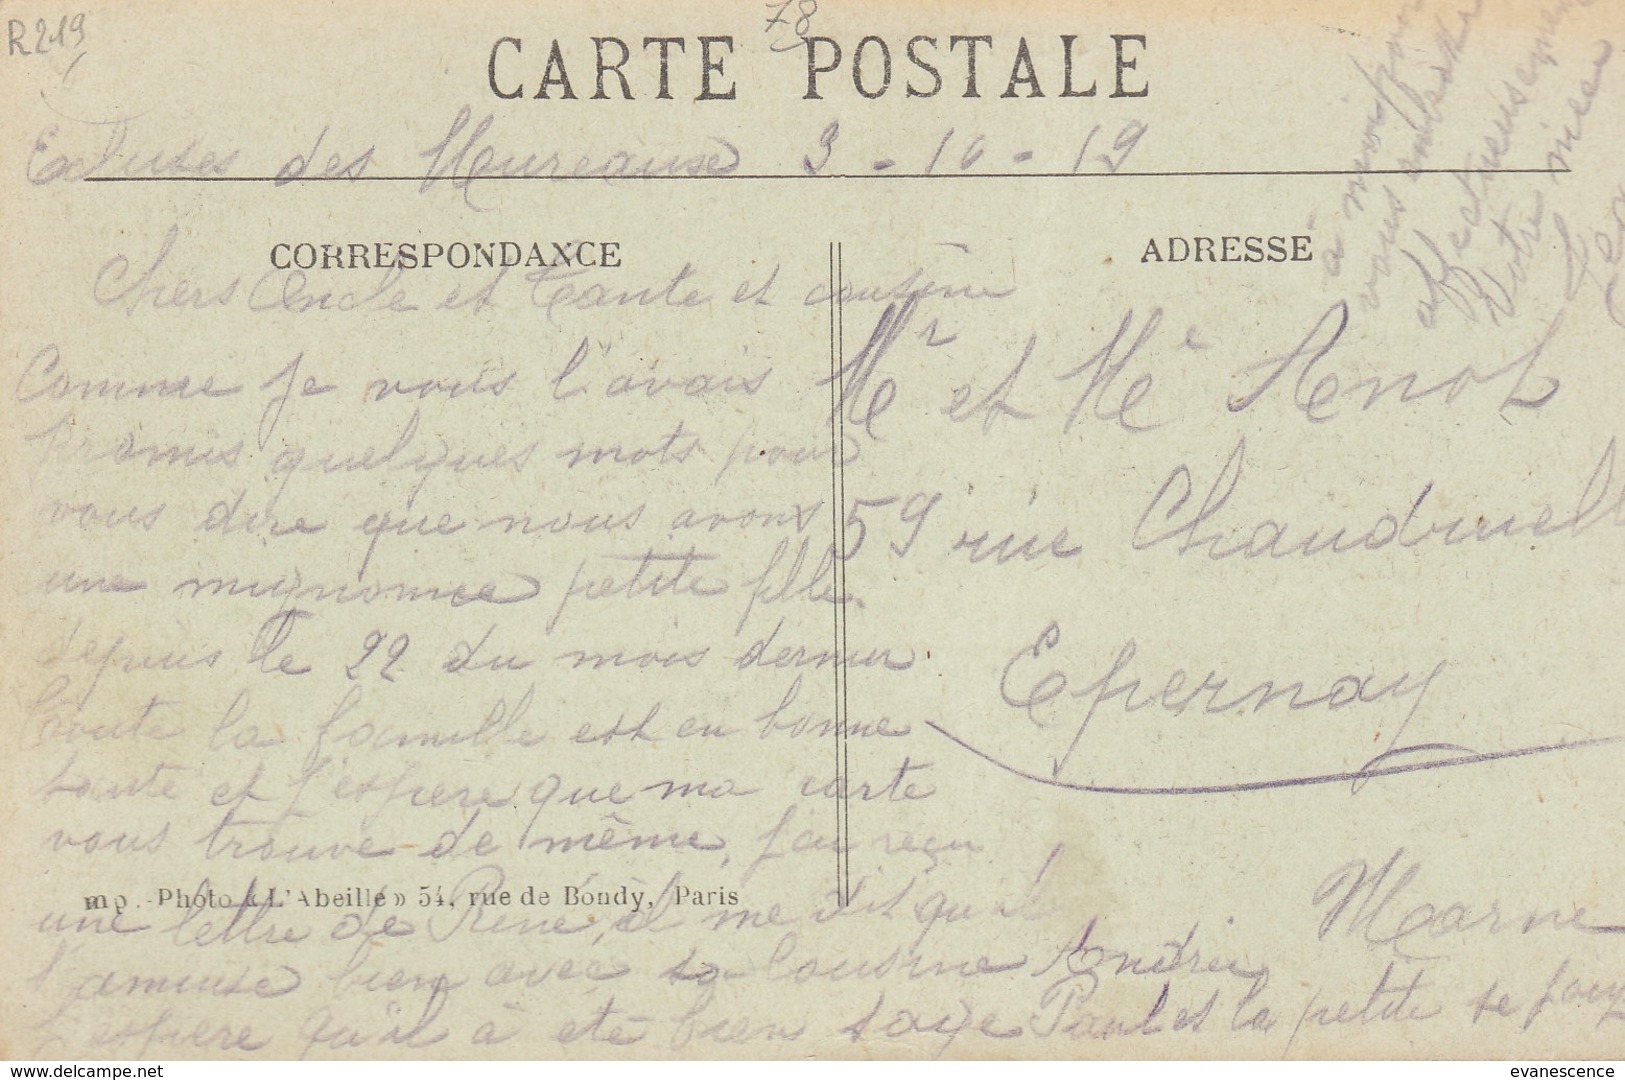 R219
78
CARTE POSTALE
Ecluses des Mureause 3-10-19
CORRESPONDANCE
Chers Oncle et Tante et cousine
Comme je vous l'avais
promis quelques mots pour
vous dire que nous avons
une mignonne petite fille.
depuis le 22 du mois dernier
Toute la famille est en bonne
sante et j'espere que ma carte
vous trouve de même, j'ai reçu
une lettre de Réné, il me dit qu'il
s'amuse bien avec sa cousine Andrée
j'espere qu'il à été bien sage Paul et la petite se
à moi pour
vous embrasser
affectueusement
Votre niece
ADRESSE
Mr et Me Renot
59 rue Chaudruell
Epernay
Marne
Imp.-Photo «L'Abeille» 54, rue de Bondy, Paris
delcampe.net
evanescence